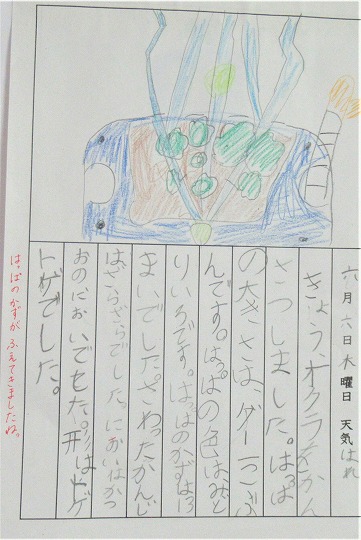 六月六日木曜日 天気 はれ
きょう、オクラをかん
さつしました。はっぱ
の大きさは、グー一こぶ
んです。はっぱの色は、みど
りいろです。はっぱのかずは、13
まいでした。さわったかんじ
はざらざらでした。においはかつ
おのにおいでした。形はトゲ
トゲでした。
はっぱのかずがふえてきましたね。